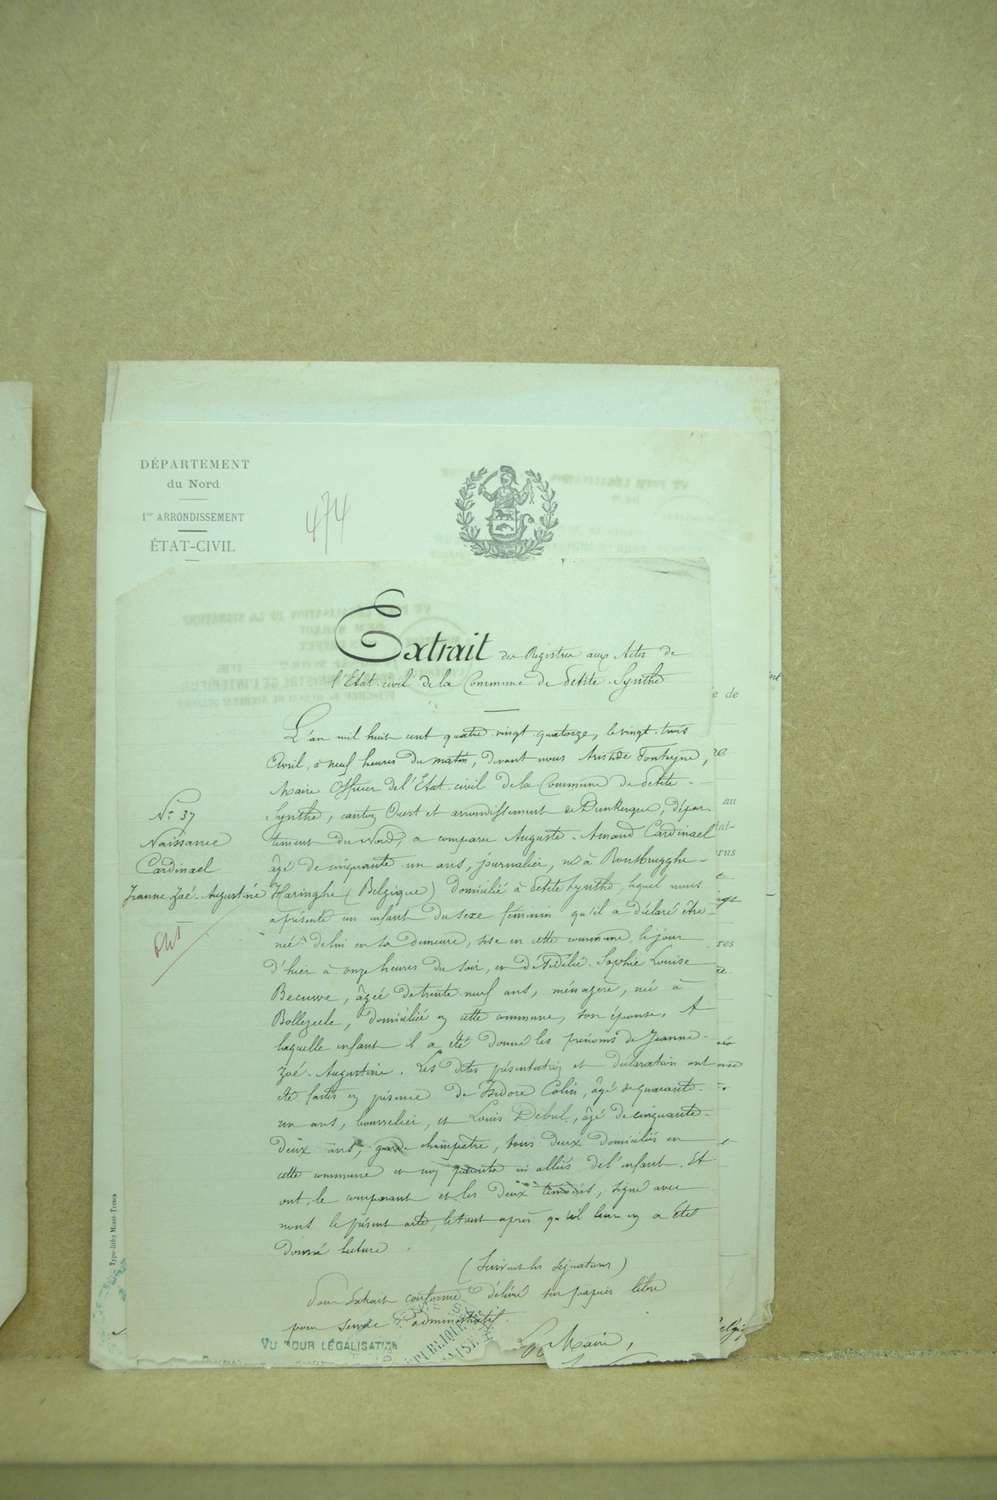 DÉPARTEMENT
du Nord
1er ARRONDISSEMENT
ÉTAT-CIVIL
474
Extrait des Registres aux Actes de
l'Etat-civil de la Commune de Petite-Synthe
L'an mil huit cent quatre-vingt-quatorze, le vingt-trois
Avril, à neuf heures du matin, devant nous Aristide Fonteyne,
Maire Officier de l'Etat-civil de la Commune de Petite-
Synthe, canton Ouest et arrondissement de Dunkerque, dépar-
tement du Nord, a comparu Auguste-Amand Cardinael
âgé de cinquante-un ans, journalier, né à Rousbrugghe-
Haringhe (Belgique) domicilié à Petite-Synthe, lequel nous
a présenté un enfant du sexe féminin qu'il a déclaré être
née de lui en sa demeure, sise en cette commune, le jour
d'hier à onze heures du soir, et de Fidélie-Sophie Louise
Becuwe, âgée de trente-neuf ans, ménagère, née à
Bollezeele, domiciliée en cette commune, son épouse. A
laquelle enfant il a été donné les prénoms de Jeanne-
Zoé-Augustine. Les dites présentation et déclaration ont
été faites en présence de Isidore Colin, âgé de quarante-
un ans, bourrelier, et Louis Debul, âgé de cinquante-
deux ans, garde champêtre, tous deux domiciliés en
cette commune et non parents ni alliés de l'enfant. Et
ont, le comparant et les deux témoins, signé avec
nous le présent acte, le tout après qu'il leur en a été
donné lecture.
(Suivent les signatures)
Pour Extrait conforme délivré sur papier libre
pour service administratif.
Le Maire,
No 37
Naissance
Cardinael
Jeanne-Zoé-Augustine
VU POUR LÉGALISATION